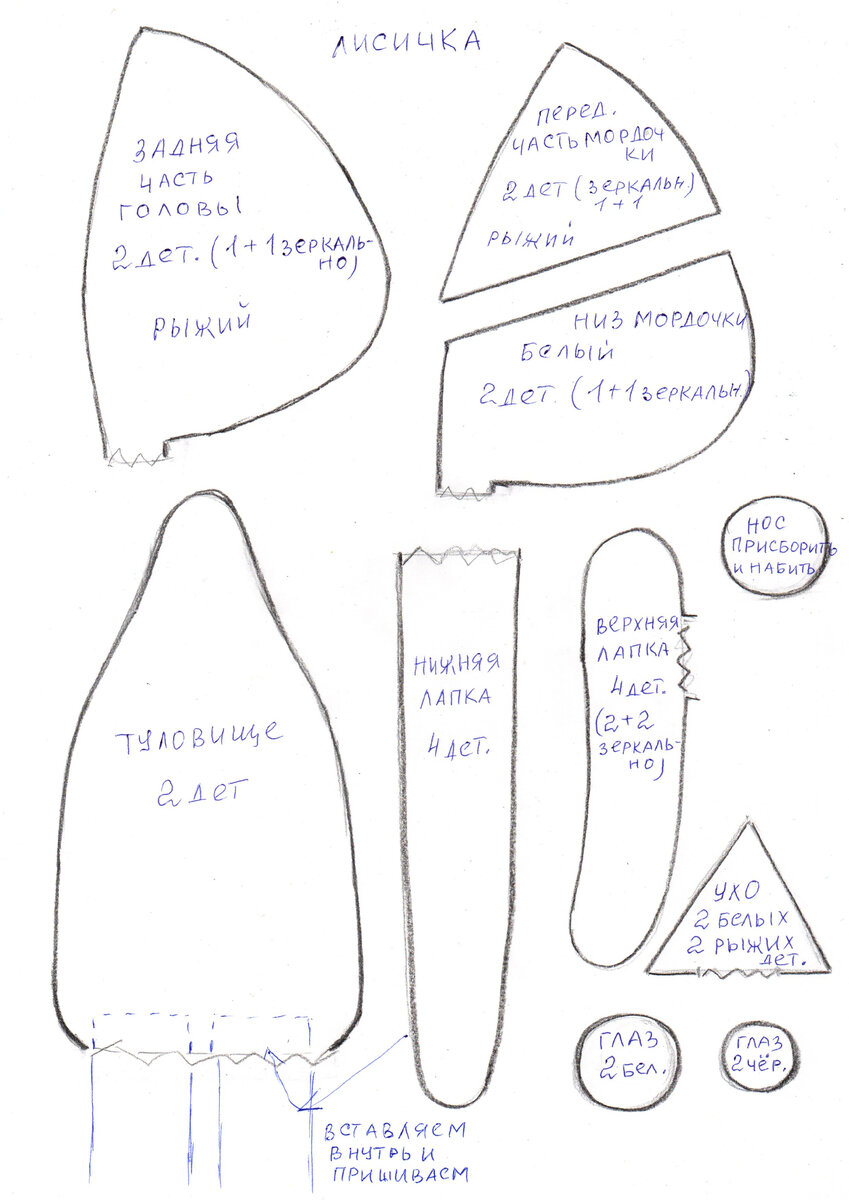 ЛИСИЧКА
ЗАДНЯЯ
ЧАСТЬ
ГОЛОВЫ
2 ДЕТ. (1+1 ЗЕРКАЛЬ-
НО)
РЫЖИЙ
ПЕРЕД.
ЧАСТЬ МОРДОЧ
КИ
2 ДЕТ (ЗЕРКАЛЬН.)
1+1
РЫЖИЙ
НИЗ МОРДОЧКИ
БЕЛЫЙ
2 ДЕТ. (1+1 ЗЕРКАЛЬН.)
НОС
ПРИСБОРИТЬ
И НАБИТЬ
ТУЛОВИЩЕ
2 ДЕТ
НИЖНЯЯ
ЛАПКА
4 ДЕТ.
ВЕРХНЯЯ
ЛАПКА
4 ДЕТ.
(2+2
ЗЕРКАЛЬ-
НО)
УХО
2 БЕЛЫХ
2 РЫЖИХ
ДЕТ.
ГЛАЗ
2 БЕЛ.
ГЛАЗ
2 ЧЁР.
ВСТАВЛЯЕМ
ВНУТРЬ И
ПРИШИВАЕМ